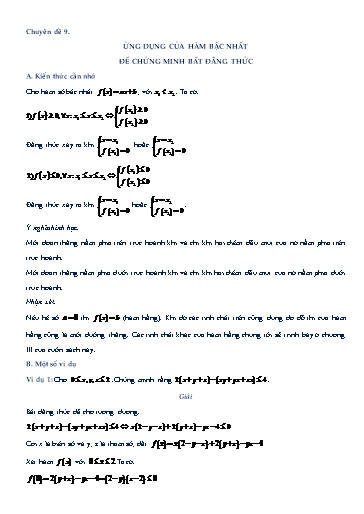 Chuyên đề 9.
ỨNG DỤNG CỦA HÀM BẬC NHẤT
ĐỂ CHỨNG MINH BẤT ĐẲNG THỨC
A. Kiến thức cần nhớ
Cho hàm số bậc nhất f(x)=ax+b, với x₁ < x₂. Ta có:
1) f(x)≥0, ∀x: x₁≤x≤x₂ ⇔ { f(x₁)≥0 f(x₂)≥0
Đẳng thức xảy ra khi { x=x₁ f(x₁)=0 hoặc { x=x₂ f(x₂)=0
2) f(x)≤0, ∀x: x₁≤x≤x₂ ⇔ { f(x₁)≤0 f(x₂)≤0
Đẳng thức xảy ra khi { x=x₁ f(x₁)=0 hoặc { x=x₂ f(x₂)=0 .
Ý nghĩa hình học.
Một đoạn thẳng nằm phía trên trục hoành khi và chỉ khi hai điểm đầu mút của nó nằm phía trên
trục hoành.
Một đoạn thẳng nằm phía dưới trục hoành khi và chỉ khi hai điểm đầu mút của nó nằm phía dưới
trục hoành.
Nhận xét.
Nếu hệ số a=0 thì f(x)=b (hàm hằng). Khi đó các tính chất trên cũng đúng do đồ thị của hàm
hằng cũng là một đường thẳng. Các tính chất khác của hàm hằng chúng tôi sẽ trình bày ở chương
III của cuốn sách này.
B. Một số ví dụ
Ví dụ 1: Cho 0≤x,y,z≤2. Chứng minh rằng 2(x+y+z)-(xy+yz+zx)≤4.
Giải
Bất đẳng thức đã cho tương đương.
2(x+y+z)-(xy+yz+zx)≤4 ⇔ x(2-y-z)+2(y+z)-yz-4≤0
Coi x là biến số và y, z là tham số, đặt f(x)=x(2-y-z)+2(y+z)-yz-4
Xét hàm f(x) với 0≤x≤2. Ta có:
f(0)=2(y+z)-yz-4=(2-y)(z-2)≤0